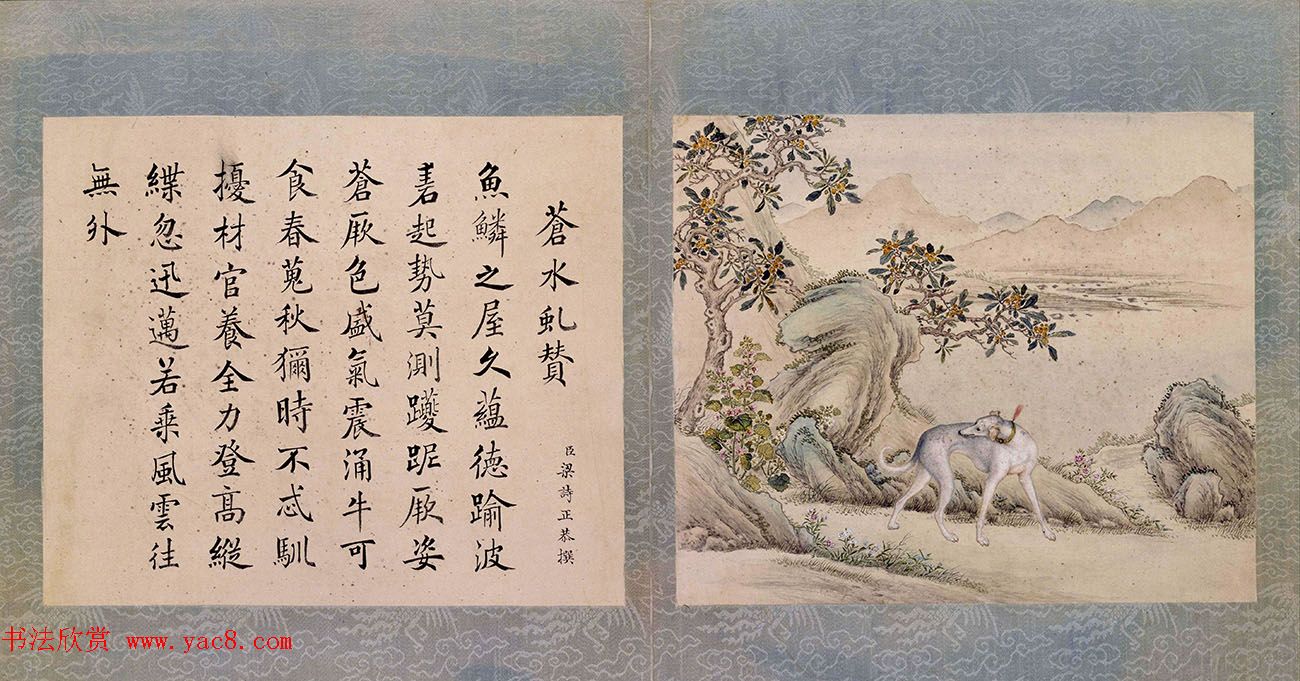 蒼水虬賛
臣梁詩正恭撰
魚鱗之屋久蘊德踰波
砉起勢莫測躨跜厥姿
蒼厥色盛氣震涌牛可
食春蒐秋獮時不忒馴
擾材官養全力登高縱
緤忽迅邁若乗風雲往
無外
书法欣赏 www.yac8.com